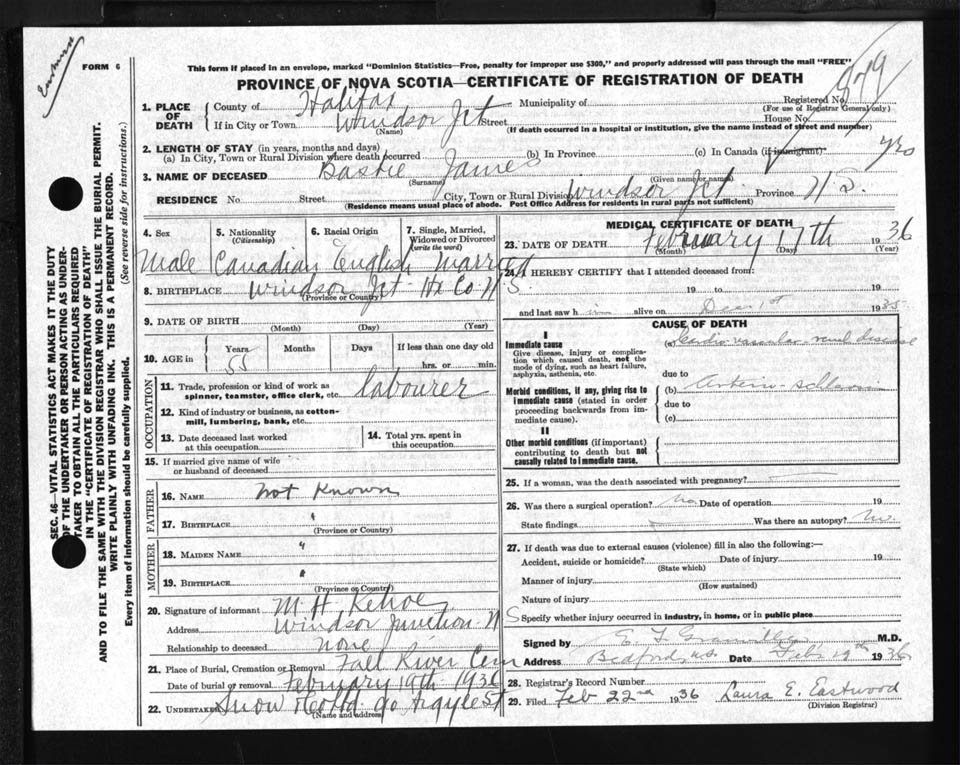 Eastwood
FORM 6
This form if placed in an envelope, marked "Dominion Statistics—Free, penalty for improper use $300," and properly addressed will pass through the mail "FREE"
PROVINCE OF NOVA SCOTIA—CERTIFICATE OF REGISTRATION OF DEATH
Registered No.
(For use of Registrar General only)
1. PLACE OF DEATH
County of Halifax Municipality of
If in City or Town Windsor Jct Street House No.
(Name) (If death occurred in a hospital or institution, give the name instead of street and number)
2. LENGTH OF STAY (in years, months and days)
(a) In City, Town or Rural Division where death occurred (b) In Province (c) In Canada (if immigrant) yrs
3. NAME OF DECEASED Bastie James
(Surname) (Given name or names)
RESIDENCE No. Street City, Town or Rural Division Windsor Jct Province N S.
(Residence means usual place of abode. Post Office Address for residents in rural parts not sufficient)
4. Sex Male
5. Nationality (Citizenship) Canadian
6. Racial Origin English
7. Single, Married, Widowed or Divorced (write the word) Married
8. BIRTHPLACE Windsor Jct Hx Co N S
(Province or Country)
9. DATE OF BIRTH
(Month) (Day) (Year)
10. AGE in Years 55 Months Days If less than one day old
hrs. or min.
OCCUPATION
11. Trade, profession or kind of work as spinner, teamster, office clerk, etc. labourer
12. Kind of industry or business, as cotton-mill, lumbering, bank, etc.
13. Date deceased last worked at this occupation
14. Total yrs. spent in this occupation
15. If married give name of wife or husband of deceased
FATHER
16. NAME Not Known
17. BIRTHPLACE "
(Province or Country)
MOTHER
18. MAIDEN NAME "
19. BIRTHPLACE "
(Province or Country)
20. Signature of informant M. H. Kehoe
Address Windsor Junction N S
Relationship to deceased none
21. Place of Burial, Cremation or Removal Fall River Cem
Date of burial or removal February 19th 1936
22. UNDERTAKER Snow & Co Ltd. 90 Argyle St
(Name and address)
MEDICAL CERTIFICATE OF DEATH
23. DATE OF DEATH February 17th 1936
(Month) (Day) (Year)
24. I HEREBY CERTIFY that I attended deceased from:
19 to 19
and last saw h im alive on Dec 1st 1935
CAUSE OF DEATH
I
Immediate cause
Give disease, injury or complication which caused death, not the mode of dying, such as heart failure, asphyxia, asthenia, etc.
(a) Cardio vascular renal disease
due to
Morbid conditions, if any, giving rise to immediate cause (stated in order proceeding backwards from immediate cause).
(b) Arterio-sclerosis
due to
(c)
II
Other morbid conditions (if important) contributing to death but not causally related to immediate cause.
25. If a woman, was the death associated with pregnancy?
26. Was there a surgical operation? No Date of operation 19
State findings Was there an autopsy? No.
27. If death was due to external causes (violence) fill in also the following:—
Accident, suicide or homicide? Date of injury 19
(State which)
Manner of injury
(How sustained)
Nature of injury
Specify whether injury occurred in industry, in home, or in public place
Signed by M.D.
Address Bedford, N.S. Date Feb 19th 1936
28. Registrar's Record Number
29. Filed Feb 22nd 1936 Laura E. Eastwood
(Division Registrar)
SEC. 46—VITAL STATISTICS ACT MAKES IT THE DUTY
OF THE UNDERTAKER OR PERSON ACTING AS UNDER-
TAKER TO OBTAIN ALL THE PARTICULARS REQUIRED
IN THE "CERTIFICATE OF REGISTRATION OF DEATH"
AND TO FILE THE SAME WITH THE DIVISION REGISTRAR WHO SHALL ISSUE THE BURIAL PERMIT.
WRITE PLAINLY WITH UNFADING INK. THIS IS A PERMANENT RECORD.
Every item of information should be carefully supplied. (See reverse side for instructions.)